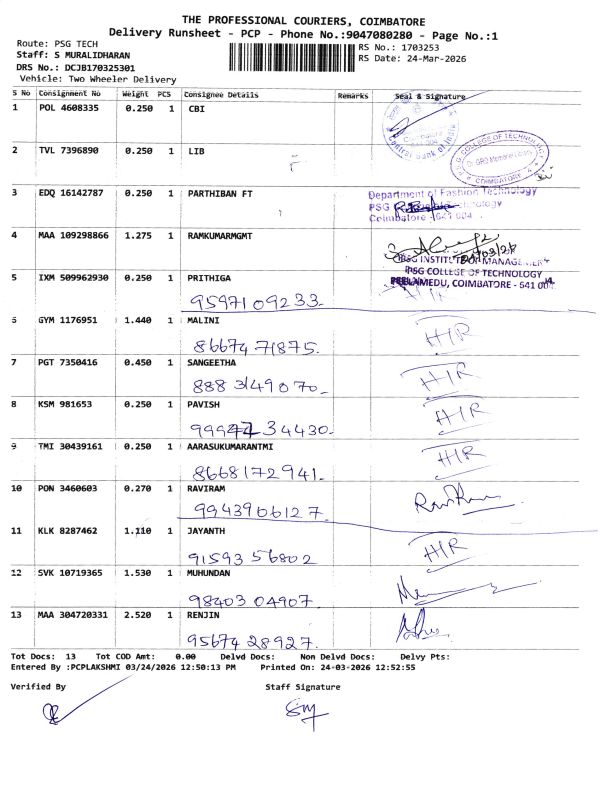 THE PROFESSIONAL COURIERS, COIMBATORE
Delivery Runsheet - PCP - Phone No.:9047080280 - Page No.:1
Route: PSG TECH
Staff: S MURALIDHARAN
DRS No.: DCJB170325301
Vehicle: Two Wheeler Delivery
RS No.: 1703253
RS Date: 24-Mar-2026
S No Consignment No Weight PCS Consignee Details Remarks Seal & Signature
1 POL 4608335 0.250 1 CBI
Central Bank of India
2 TVL 7396890 0.250 1 LIB
P.S.G. COLLEGE OF TECHNOLOGY
COIMBATORE - 4
3 EDQ 16142787 0.250 1 PARTHIBAN FT
Department of Fashion Technology
PSG
Coimbatore - 641 004
4 MAA 109298866 1.275 1 RAMKUMARMGMT
PSG INSTITUTE OF MANAGEMENT
PSG COLLEGE OF TECHNOLOGY
PEELAMEDU, COIMBATORE - 641 004.
5 IXM 509962930 0.250 1 PRITHIGA
9597109233. H/R
6 GYM 1176951 1.440 1 MALINI
8667471875. H/R
7 PGT 7350416 0.450 1 SANGEETHA
8883149070. H/R
8 KSM 981653 0.250 1 PAVISH
34430. H/R
9 TMI 30439161 0.250 1 AARASUKUMARANTMI
8668172941. H/R
10 PON 3460603 0.270 1 RAVIRAM
9943906127.
11 KLK 8287462 1.110 1 JAYANTH
9159356802 H/R
12 SVK 10719365 1.530 1 MUHUNDAN
9840304907.
13 MAA 304720331 2.520 1 RENJIN
9567428927.
Tot Docs: 13 Tot COD Amt: 0.00 Delvd Docs: Non Delvd Docs: Delvy Pts:
Entered By :PCPLAKSHMI 03/24/2026 12:50:13 PM Printed On: 24-03-2026 12:52:55
Verified By Staff Signature